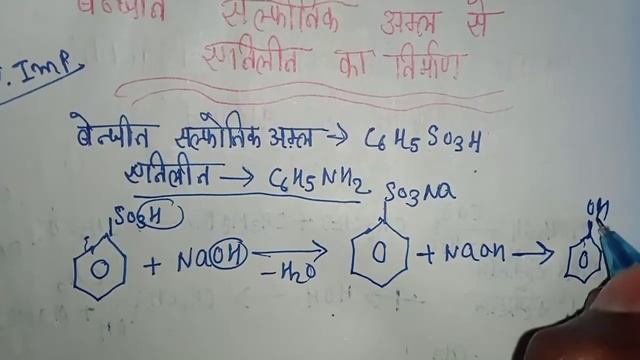 बेन्जीन सल्फोनिक अम्ल से
एनिलीन का निर्माण
Imp.
बेन्जीन सल्फोनिक अम्ल → C6H5SO3H
एनिलीन → C6H5NH2
SO3H + NaOH → -H2O SO3Na + NaOH → OH